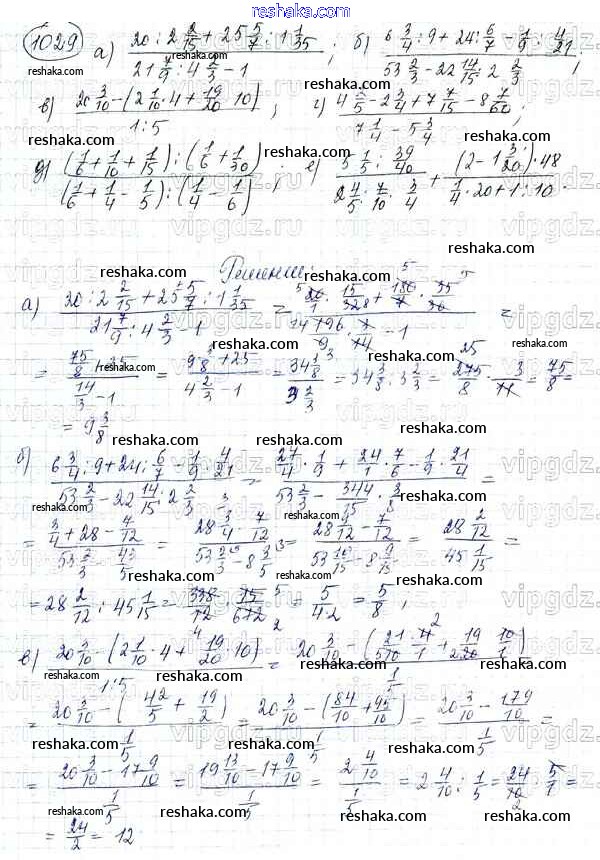 www.reshaka.com
1029 а) (20 : 2 2/15 + 25 5/7 : 1 1/35) / (21 7/9 : 4 2/3 − 1) ; б) (6 3/4 : 9 + 24 : 6/7 − 1/9 : 4/21) / (53 2/3 − 22 14/15 : 2 2/3) ;
в) (20 3/10 − (2 1/10 · 4 + 19/20 · 10)) / (1 : 5) ; г) (4 4/5 − 2 3/4 + 7 7/15 − 8 7/60) / (7 1/4 − 5 3/4) ;
д) ((1/6 + 1/10 + 1/15) : (1/6 + 1/30)) / ((1/6 + 1/4 − 1/5) : (1/4 − 1/6)) ; е) (3 1/5 : 39/40) / (2 4/5 · 7/10 : 3/4) + ((2 − 1 3/20) · 48) / (1/4 · 20 + 1 : 10) .
Решение:
а) (20 : 2 2/15 + 25 5/7 : 1 1/35) / (21 7/9 : 4 2/3 − 1) = (20/1 · 15/328 + 180/7 · 35/36) / (196/9 · 3/14 − 1) =
= (75/8 + 25) / (14/3 − 1) = (9 3/8 + 25) / (4 2/3 − 1) = (34 3/8) / (3 2/3) = 34 3/8 : 3 2/3 = 275/8 · 3/11 = 75/8 =
= 9 3/8
б) (6 3/4 : 9 + 24 : 6/7 − 1/9 : 4/21) / (53 2/3 − 22 14/15 : 2 2/3) = (27/4 · 1/9 + 24/1 · 7/6 − 1/9 · 21/4) / (53 2/3 − 344/15 · 3/8) =
= (3/4 + 28 − 7/12) / (53 2/3 − 43/5) = (28 3/4 − 7/12) / (53 2/3 − 8 3/5) = (28 9/12 − 7/12) / (53 10/15 − 8 9/15) = (28 2/12) / (45 1/15) =
= 28 2/12 : 45 1/15 = 338/12 · 15/672 = 5/(4·2) = 5/8 ;
в) (20 3/10 − (2 1/10 · 4 + 19/20 · 10)) / (1 : 5) = (20 3/10 − (21/10 · 4/1 + 19/20 · 10/1)) / (1/5) =
= (20 3/10 − (42/5 + 19/2)) / (1/5) = (20 3/10 − (84/10 + 95/10)) / (1/5) = (20 3/10 − 179/10) / (1/5) =
= (20 3/10 − 17 9/10) / (1/5) = (19 13/10 − 17 9/10) / (1/5) = (2 4/10) / (1/5) = 2 4/10 : 1/5 = 24/10 · 5/1 =
= 24/2 = 12